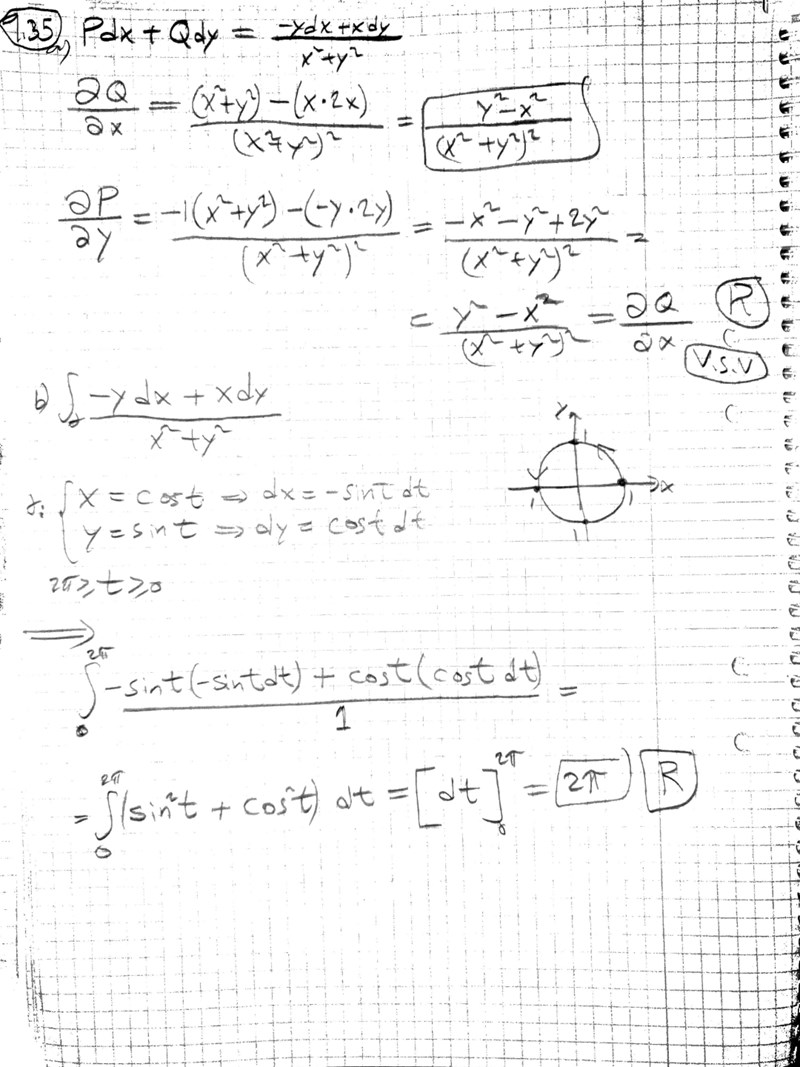 9.35 a) Pdx + Qdy = (-ydx + xdy)/(x²+y²)
∂Q/∂x = ((x²+y²) - (x·2x))/(x²+y²)² = (y²-x²)/(x²+y²)²
∂P/∂y = (-1(x²+y²) - (-y·2y))/(x²+y²)² = (-x²-y²+2y²)/(x²+y²)² =
= (y²-x²)/(x²+y²)² = ∂Q/∂x R
V.S.V
b) ∫γ (-ydx + xdy)/(x²+y²)
y
1
x
1
1
1
γ: { x = cost ⇒ dx = -sint dt
y = sint ⇒ dy = cost dt
2π ≥ t ≥ 0
⟹
∫₀^2π (-sint(-sintdt) + cost(cost dt))/1 =
= ∫₀^2π (sin²t + cos²t) dt = [dt]₀^2π = 2π R